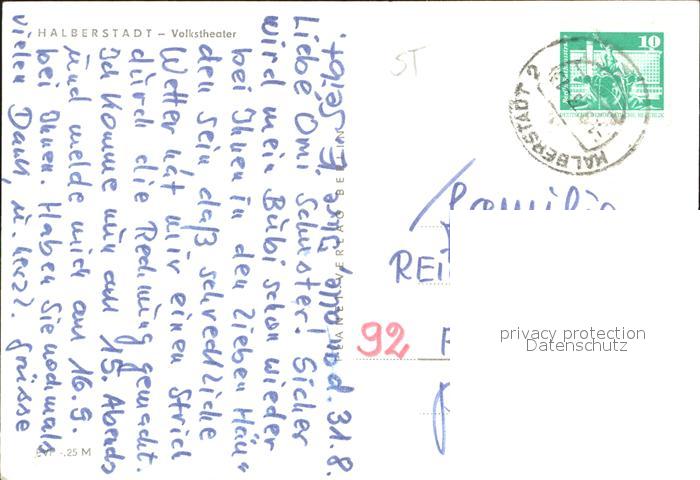 HALBERSTADT – Volkstheater
d. 31.8.
Liebe Omi Schuster! Sicher
wird mein Bubi schon wieder
bei Ihnen in den Lieben Häu-
den sein daß schreckliche
Wetter hat mir einen Strich
durch die Rechnung gemacht.
Ich komme nun am 15. Abends
und melde mich am 16.9.
bei Ihnen. Haben Sie nochmals
vielen Dank, u. herzl. Grüsse
Ihre E.
PLANET-VERLAG BERLIN
EVP -.25 M
ST
10
DEUTSCHE DEMOKRATISCHE REPUBLIK
HALBERSTADT 2
Familie
REI
92
privacy protection
Datenschutz